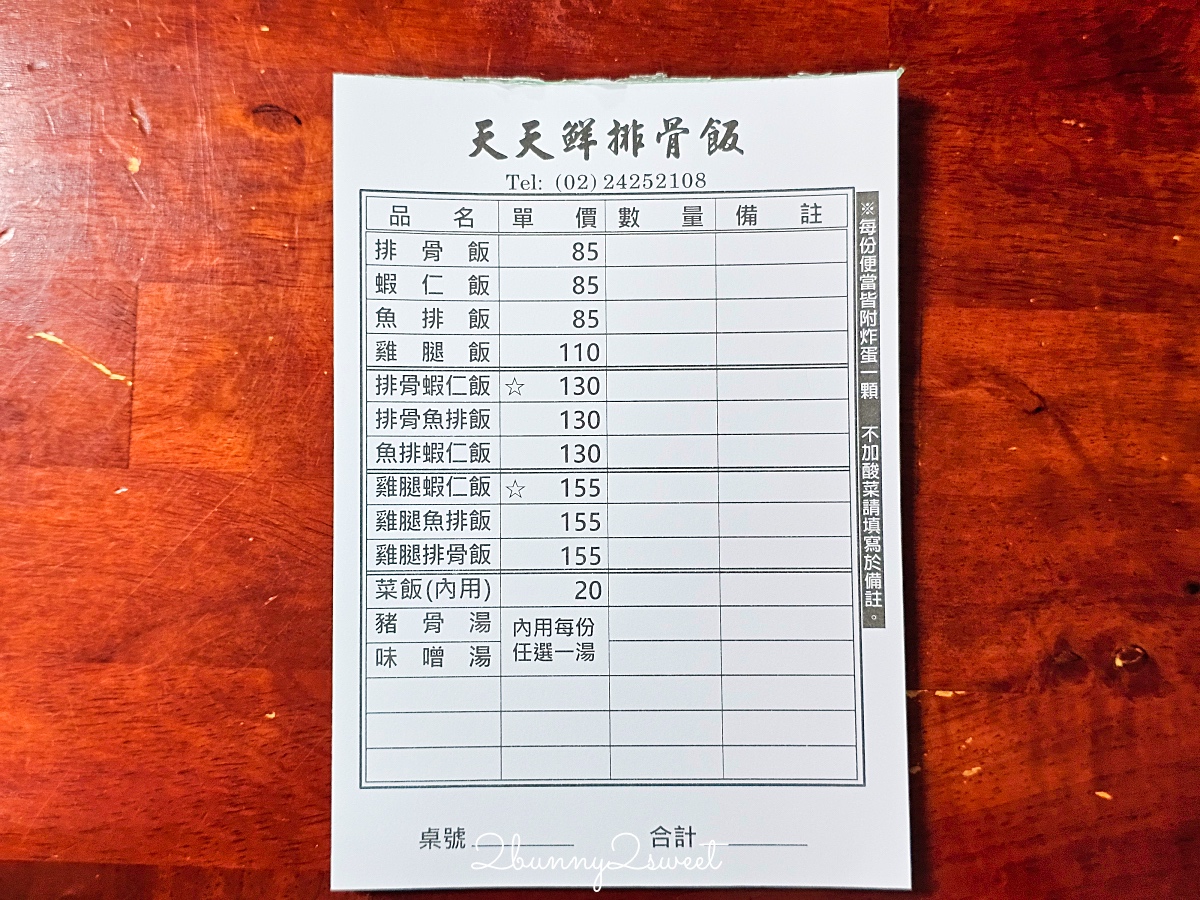 天天鮮排骨飯
Tel: (02) 24252108
品名 單價 數量 備註
排骨飯 85
蝦仁飯 85
魚排飯 85
雞腿飯 110
排骨蝦仁飯 ☆ 130
排骨魚排飯 130
魚排蝦仁飯 130
雞腿蝦仁飯 ☆ 155
雞腿魚排飯 155
雞腿排骨飯 155
菜飯(內用) 20
豬骨湯 內用每份
味噌湯 任選一湯
※每份便當皆附炸蛋一顆 不加酸菜請填寫於備註。
桌號 合計
2bunny2sweet